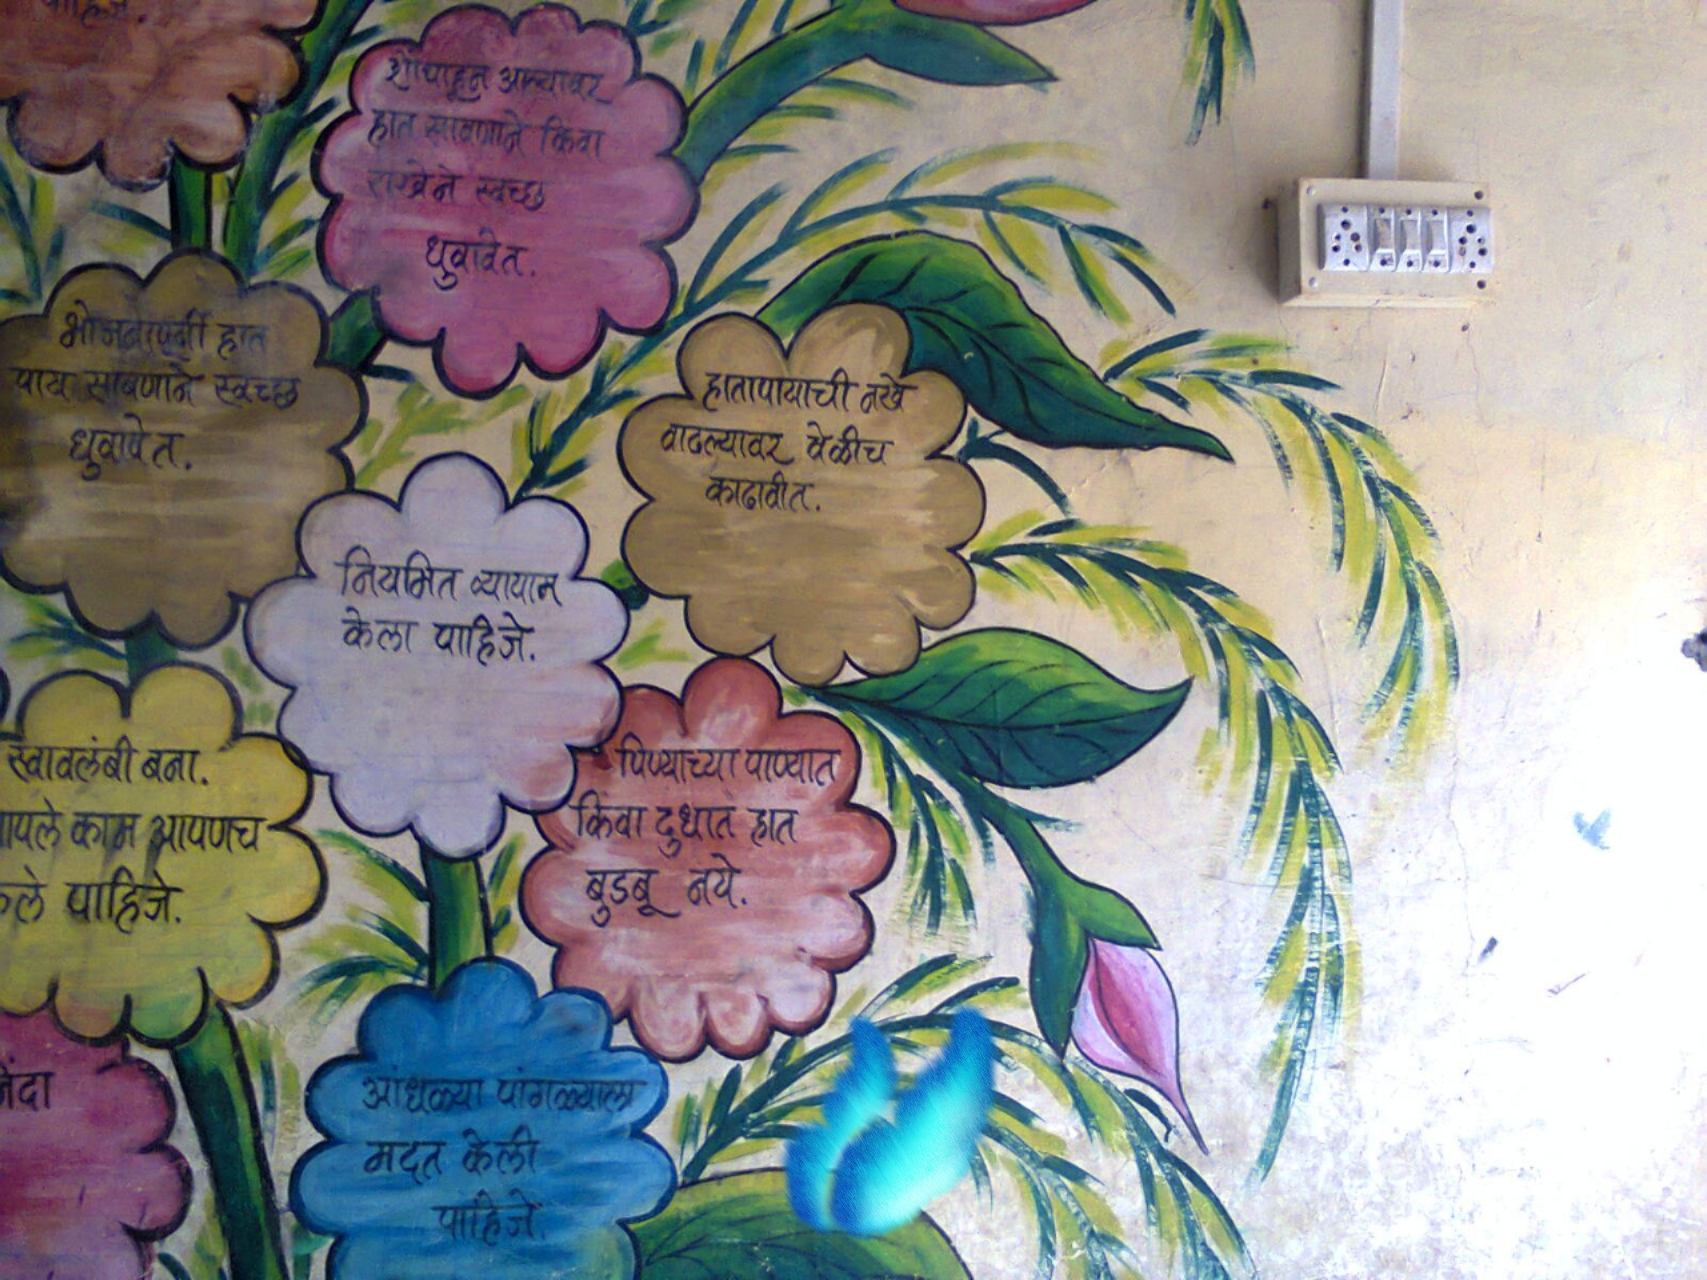 पाहिजे.
शौचाहून आल्यावर
हात साबणाने किंवा
राखेने स्वच्छ
धुवावेत.
भोजनापूर्वी हात
पाय साबणाने स्वच्छ
धुवावेत.
हातापायाची नखे
वाढल्यावर वेळीच
काढावीत.
नियमित व्यायाम
केला पाहिजे.
स्वावलंबी बना.
काम आपणच
पाहिजे.
पिण्याच्या पाण्यात
किंवा दुधात हात
बुडबू नये.
आंधळ्या पांगळ्याला
मदत केली
पाहिजे.